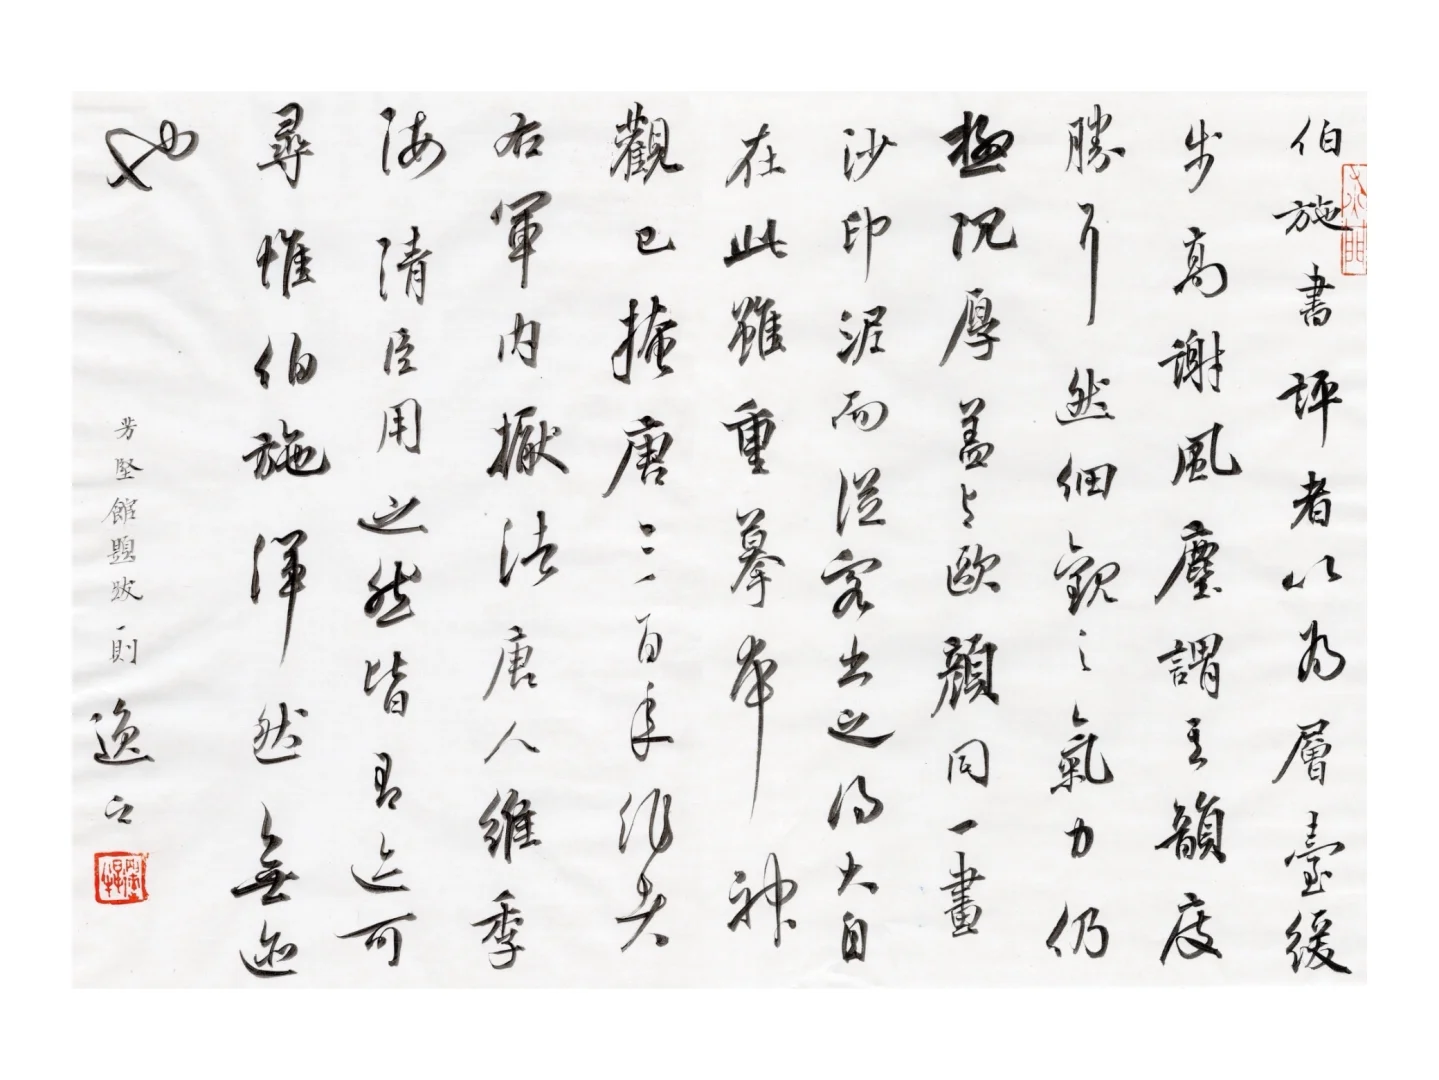 伯施書評者以為層臺緩
步高謝風塵謂其韻度
勝耳然細觀之氣力仍
極沉厚蓋与欧顏同一畫
沙印泥而從容出之得大自
在此雖重摹本神
觀已掩唐三百年作者
右軍内擫法唐人維季
海清臣用之然皆有迹可
尋惟伯施渾然無迹
也
芳堅館題跋一則
逸